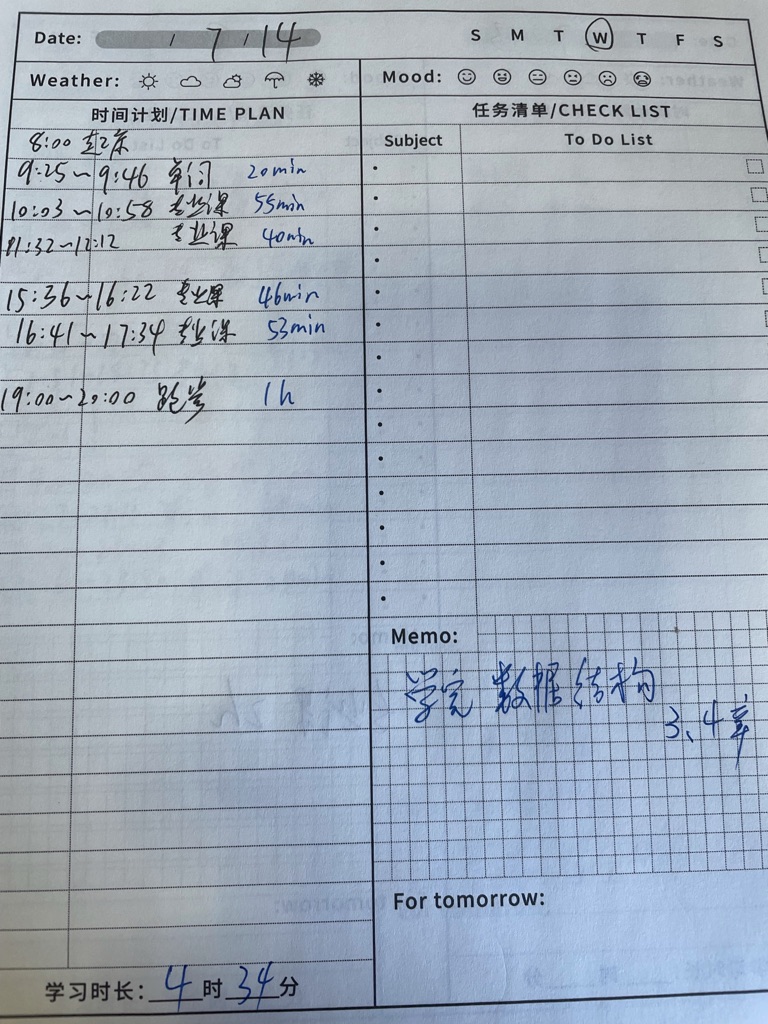 Date: / 7 / 14
S M T W T F S
Weather:
Mood:
时间计划/TIME PLAN
8:00 起床
9:25~9:46 单词 20min
10:03~10:58 专业课 55min
11:32~12:12 专业课 40min
15:36~16:22 专业课 46min
16:41~17:34 专业课 53min
19:00~20:00 跑步 1h
学习时长: 4 时 34 分
任务清单/CHECK LIST
Subject To Do List
Memo:
学完 数据结构
3、4章
For tomorrow: